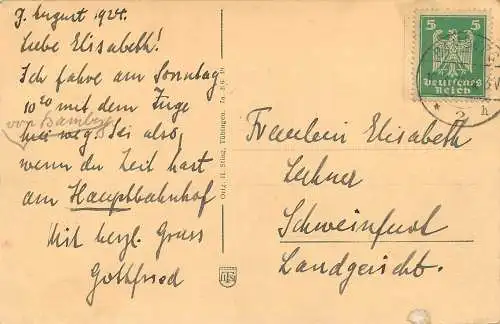 August 1924.
Liebe Elisabeth!
Ich fahre am Sonntag
10²⁰ mit dem Zuge
von Bamberg
hier weg. Sei also,
wenn du Zeit hast
am Hauptbahnhof
Mit herzl. Gruss
Gottfried
Tübingen.
5 5
Deutsches
Reich
* 2 h
Fräulein Elisabeth
Lechner
Schweinfurt
Landgericht.